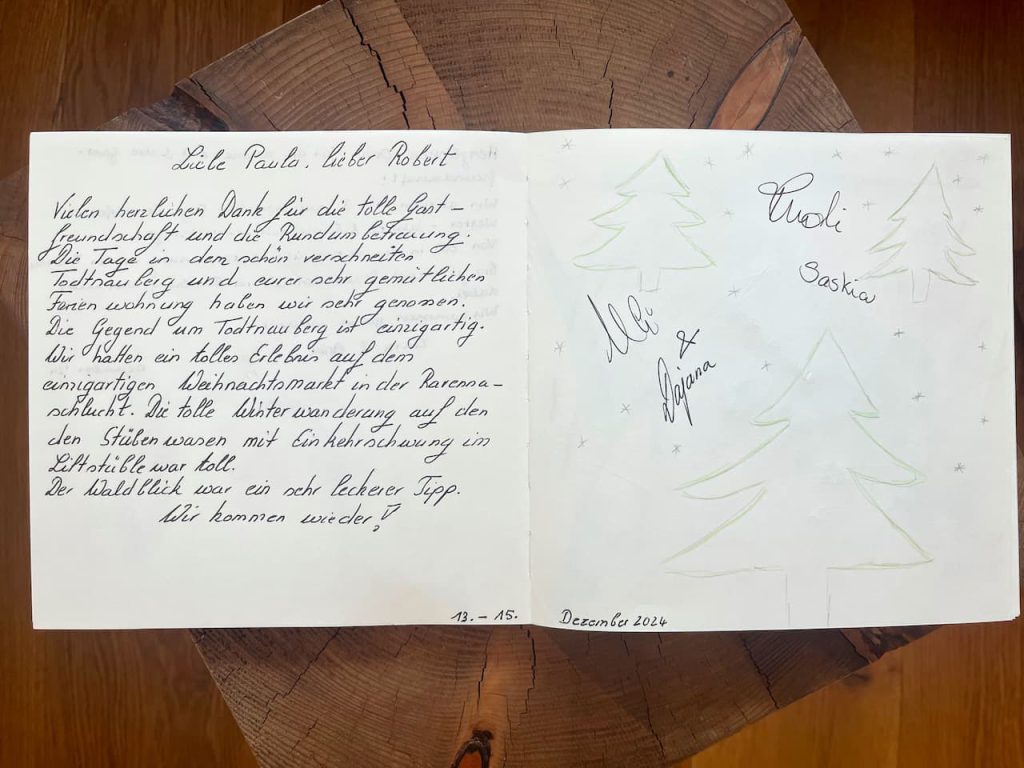 Liebe Paula, lieber Robert
Vielen herzlichen Dank für die tolle Gast-
freundschaft und die Rundumbetreuung.
Die Tage in dem schön verschneiten
Todtnauberg und eurer sehr gemütlichen
Ferienwohnung haben wir sehr genossen.
Die Gegend um Todtnauberg ist einzigartig.
Wir hatten ein tolles Erlebnis auf dem
einzigartigen Weihnachtsmarkt in der Ravenna-
schlucht. Die tolle Winterwanderung auf den
den Stübenwasen mit Einkehrschwung im
Liftstüble war toll.
Der Waldblick war ein sehr leckerer Tipp.
Wir kommen wieder!
13. - 15.
Saskia
&
Dajana
Dezember 2024